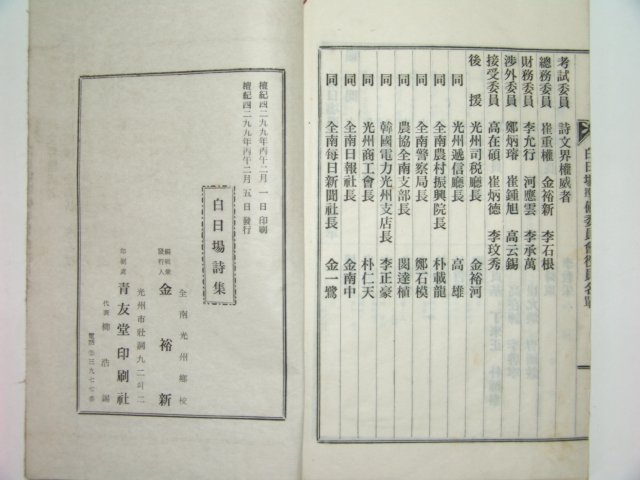 白日場準備委員會役員名單
考試委員 詩文界權威者
總務委員 崔重權 金裕新 李石根
財務委員 李允行 河應雲 李承萬
涉外委員 鄭炳瑢 崔鍾旭 高云錫
接受委員 高在碩 崔炳德 李玟秀
後援 光州司稅廳長 金裕河
同 光州遞信廳長 高雄
同 全南農村振興院長 朴載成
同 全南警察局長 鄭石模
同 農協全南支部長 閔達植
同 韓國電力光州支店長 李正豪
同 光州商工會長 朴仁天
同 全南日報社長 金南中
同 全南每日新聞社長 金一鷺
檀紀四二九九年丙午二月一日印刷
檀紀四二九九年丙午二月五日發行
白日場詩集
全南光州鄉校
編輯兼發行人 金裕新
光州市壯洞九二의二
印刷處 青友堂印刷社
代表 柳浩錫
電話②三九七七番